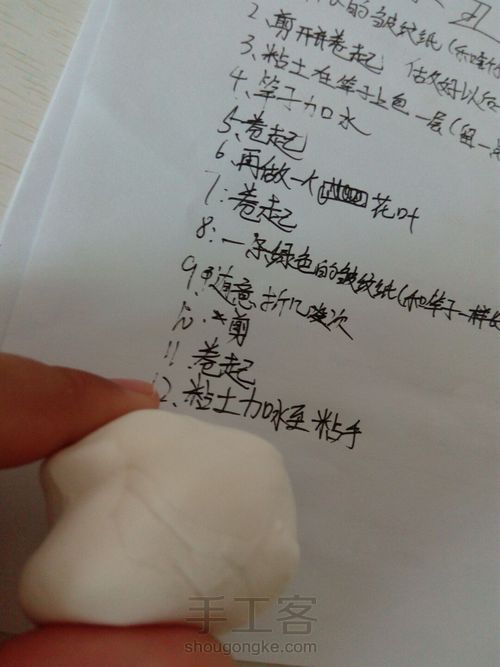 丑
的皱纹纸(和
2、剪开并卷起 估
3、粘土在竿子上包一层(留一
4、竿子加水
5、卷起
6、再做一个 花叶
7、卷起
8、一条绿色的皱纹纸(和竿子一样长
9、随意折几次
10、剪
11、卷起
12、粘土加水至粘手
手工客
shougongke.com